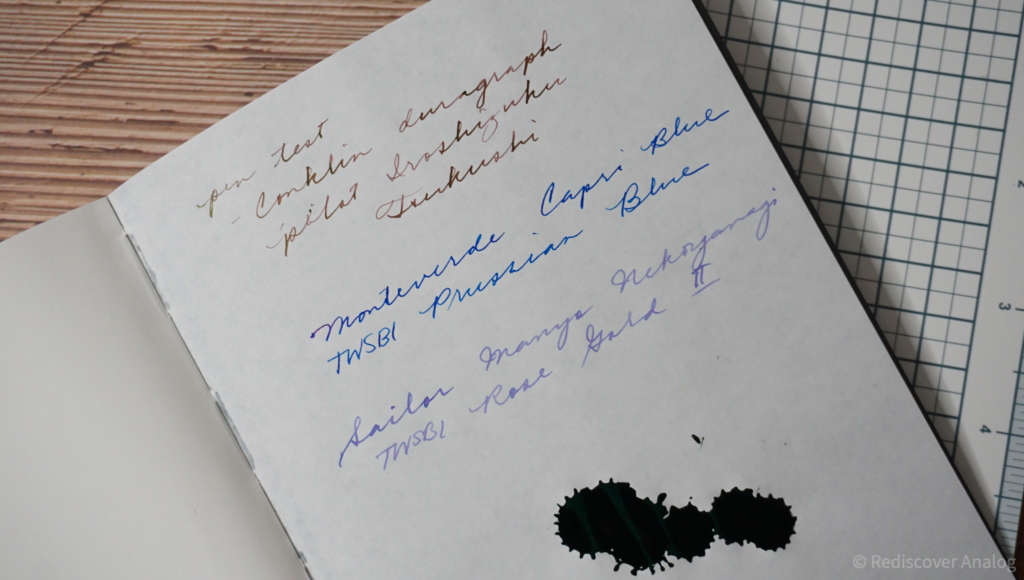 pen test
- Conklin duragraph
pilot Iroshizuku
Tsukushi
Monteverde Capri Blue
TWSBI Prussian Blue
Sailor Manyo Nekoyanagi
TWSBI Rose Gold II
2
3
4
© Rediscover Analog